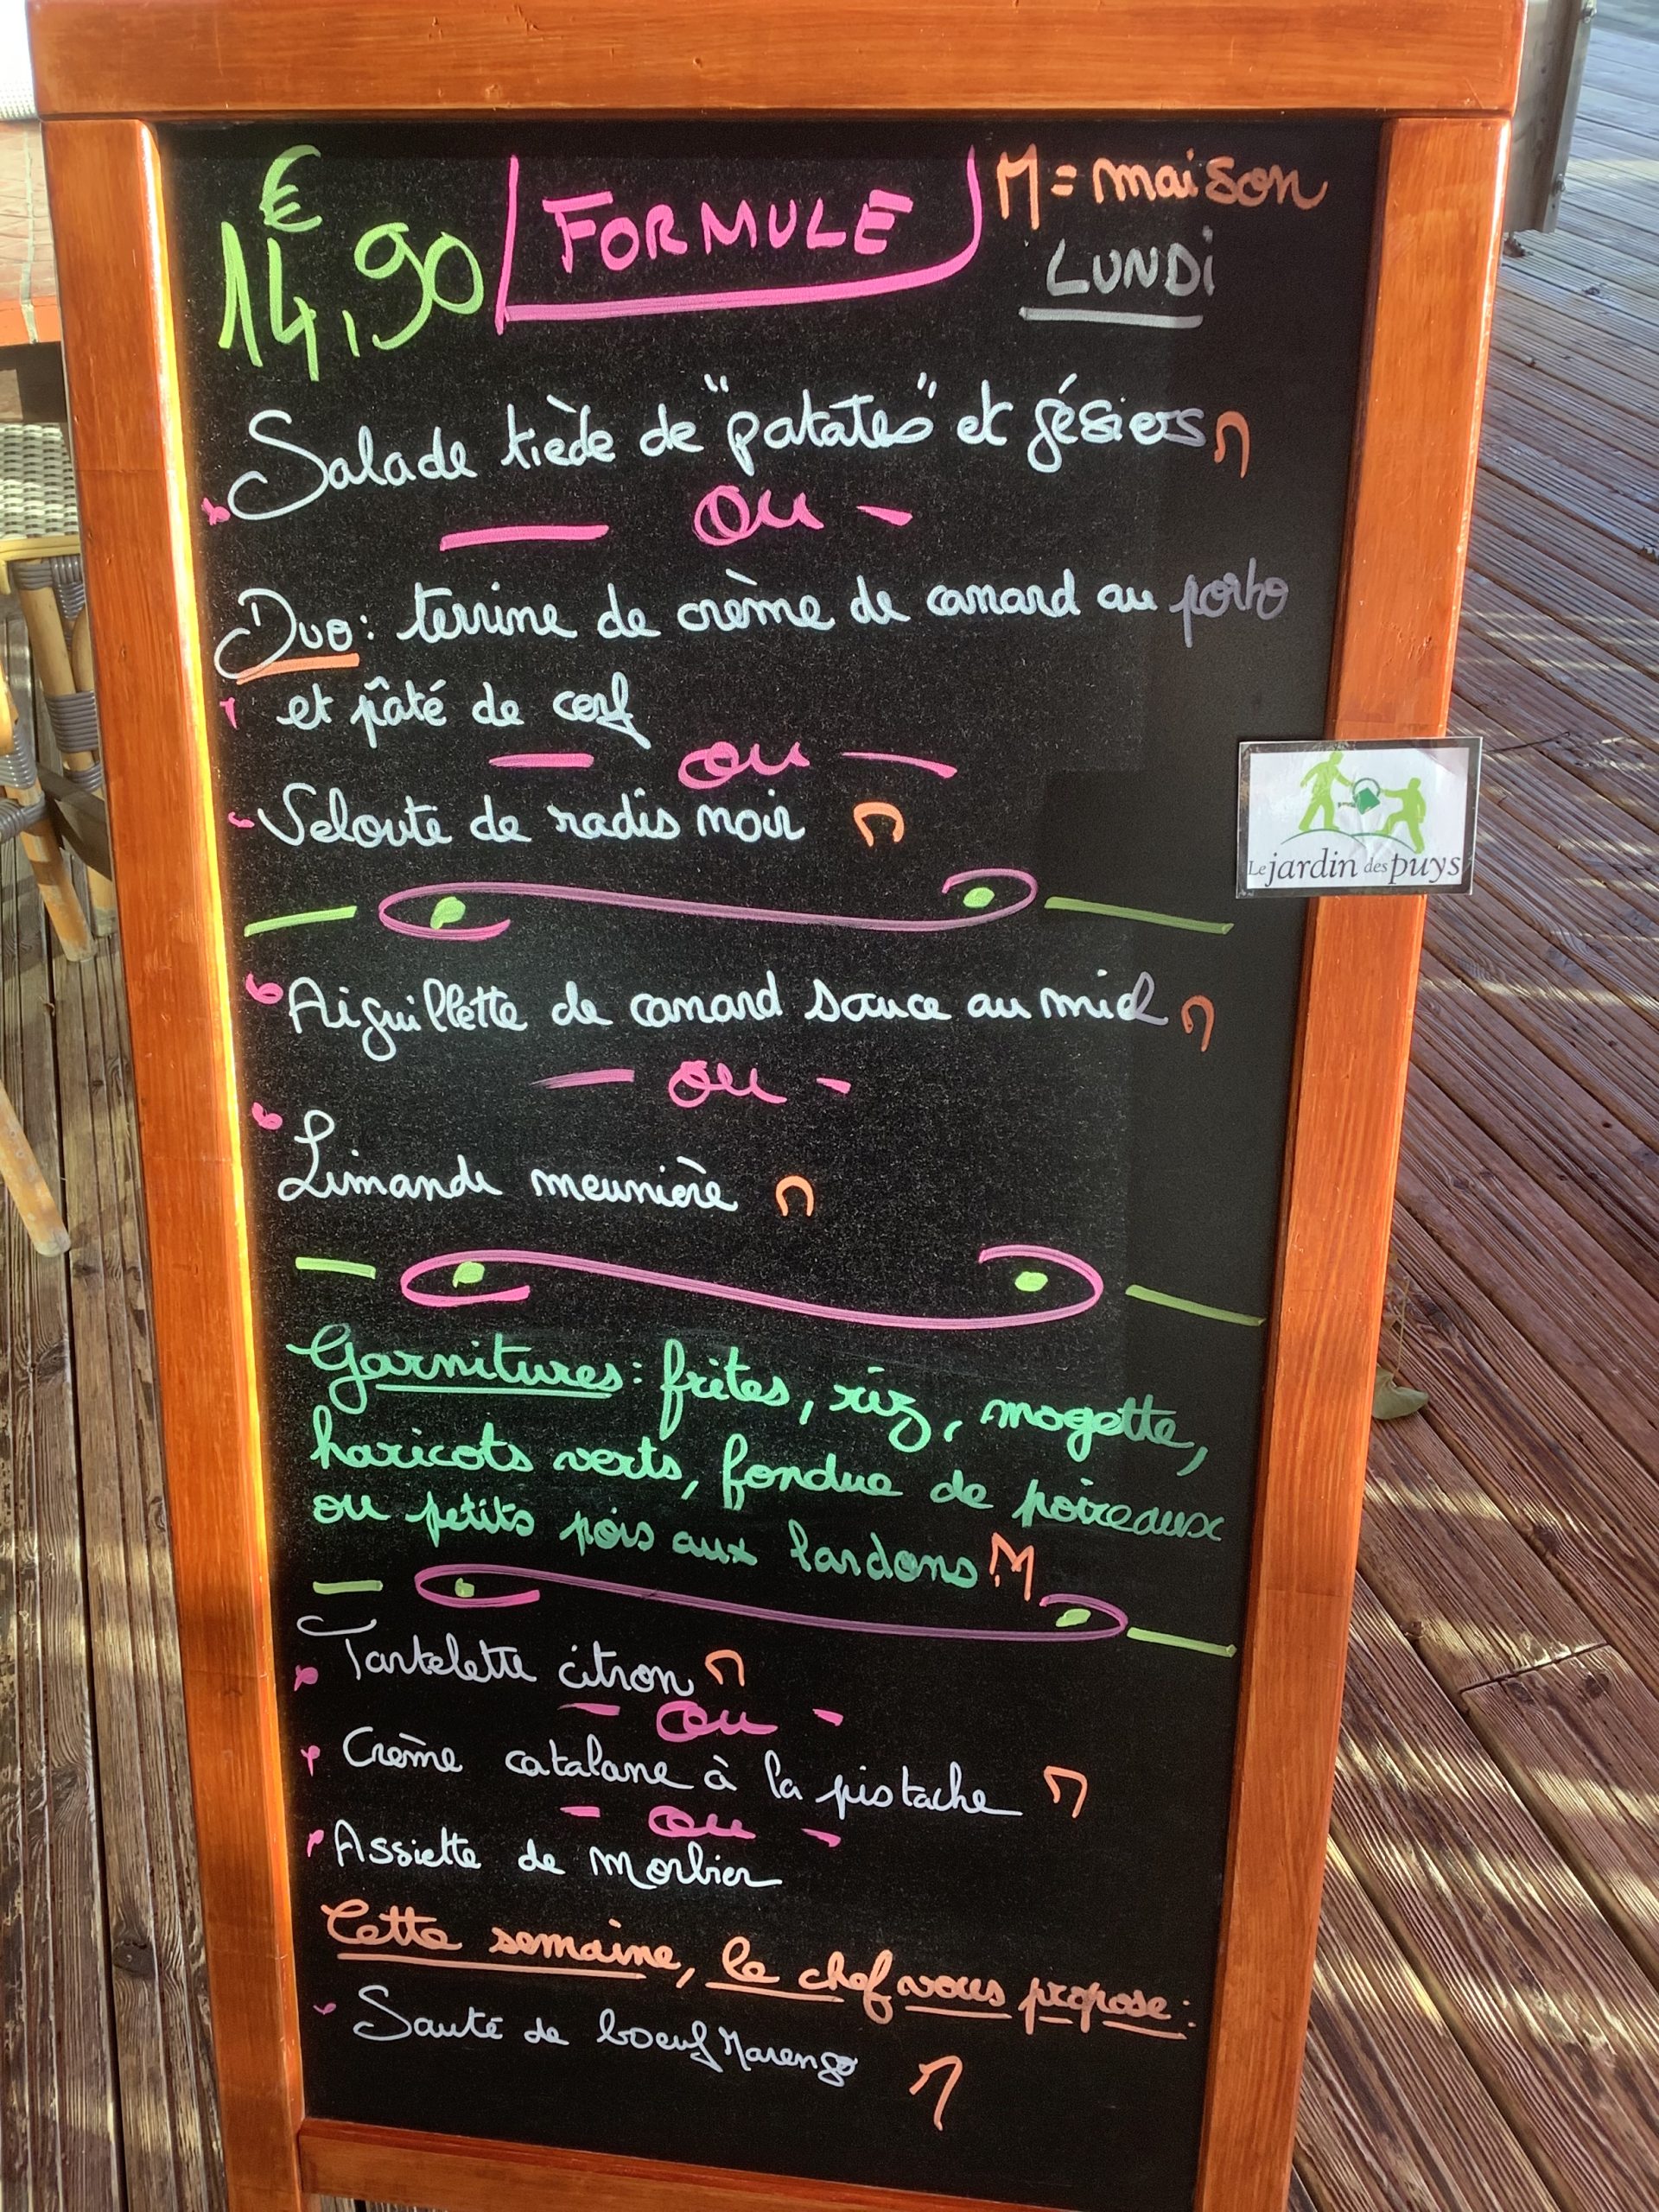 €
14,90 FORMULE M = maison
LUNDi
Salade tiède de "patates" et gésiers M
ou
Duo : terrine de crème de canard au porto
et pâté de cerf
ou
Velouté de radis noir M
Le jardin des puys
Aiguillette de canard sauce au miel M
ou
Limande meunière M
Garnitures : frites, riz, mogette,
haricots verts, fondue de poireaux
ou petits pois aux lardons M
Tartelette citron M
ou
Crème catalane à la pistache M
ou
Assiette de Morbier
Cette semaine, le chef vous propose :
Sauté de boeuf Marengo M